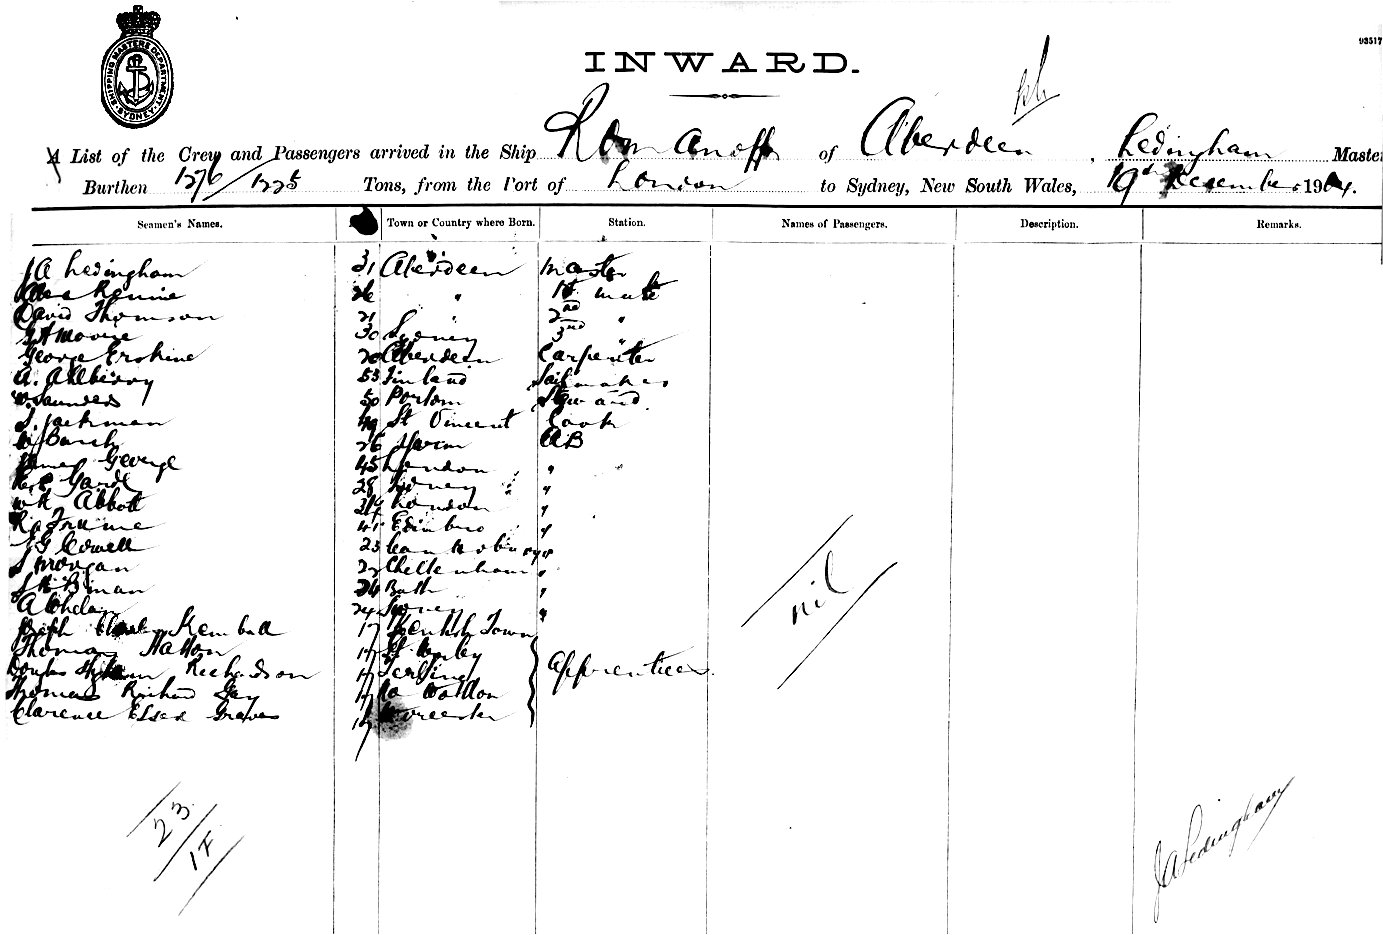 SHIPPING MASTERS DEPARTMENT SYDNEY
93517
INWARD.
A List of the Crew and Passengers arrived in the Ship Romanoff of Aberdeen, Ledingham Master
Burthen 1276/1225 Tons, from the Port of London to Sydney, New South Wales, 19th December 1904.
Seamen's Names. Town or Country where Born. Station. Names of Passengers. Description. Remarks.
JA Ledingham 31 Aberdeen Master
Alex Rennie 26 " 1st mate
David Thomson 21 " 2nd "
30 Sydney 3rd "
George Erskine 20 Aberdeen Carpenter
A. Ahlberg 55 Finland Sailmaker
W. Saunders 50 Steward
S. Jackman 49 St Vincent Cook
26 AB
James George 45 London "
28 Sydney "
Abbott London "
41 Edinburo "
Cowell 23 "
S Morgan 22 Cheltenham "
24 Bath "
A Whelan 24 Sydney "
Joseph Kemball 17 Kentish Town
Thomas Hatton 17
Douglas Richardson 17 Terling Apprentices
Thomas Richard 17
Clarence Graves 17 Worcester
nil
23
1F
JA Ledingham